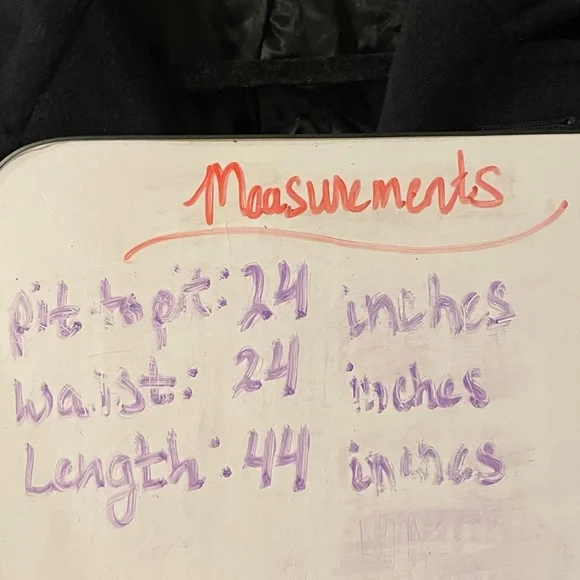 Measurements
pit to pit: 24 inches
waist: 24 inches
Length: 44 inches